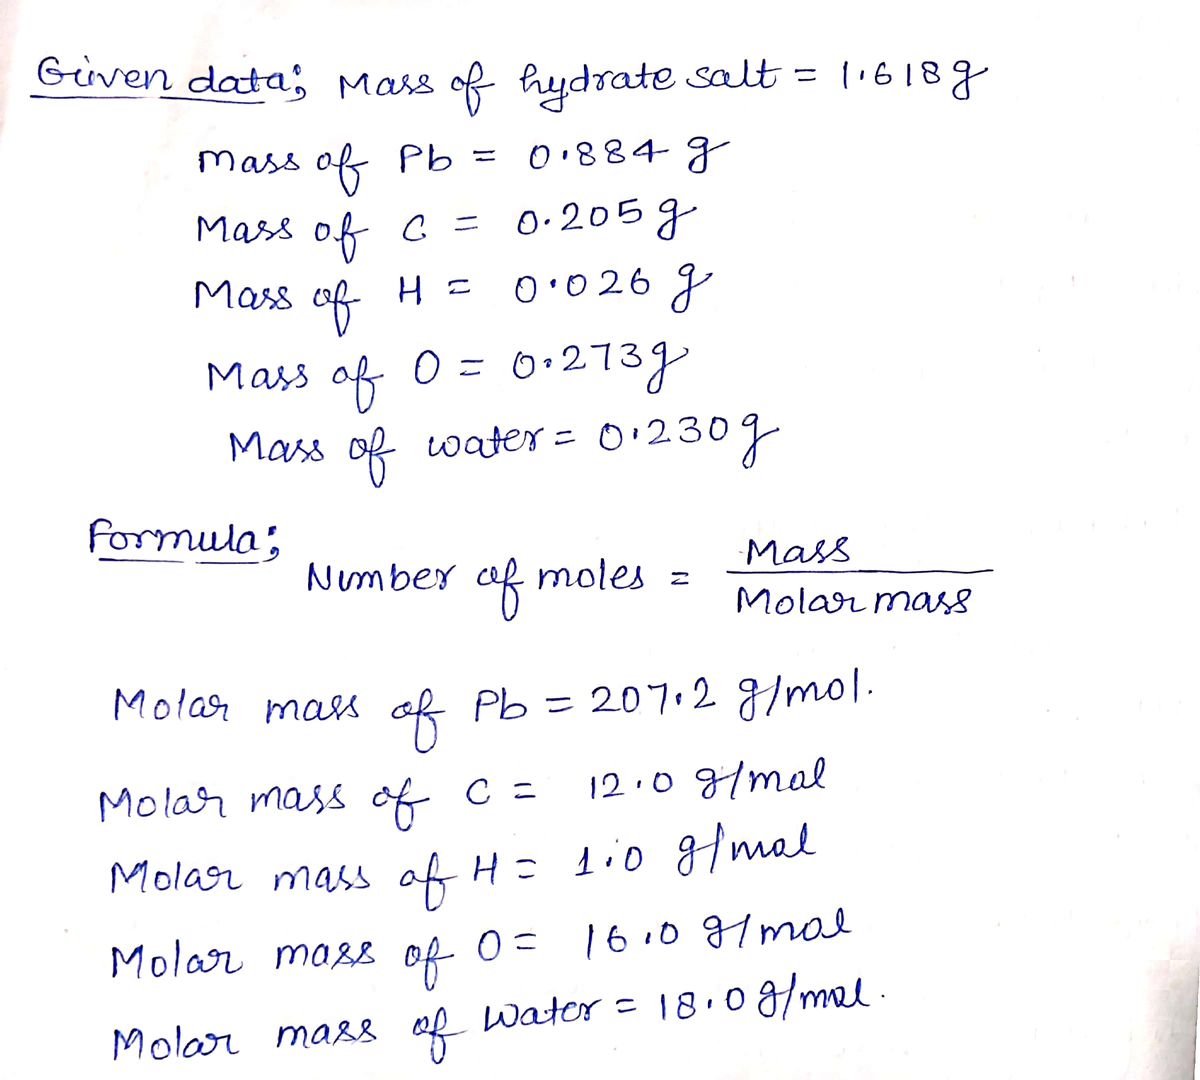 Given data; Mass of hydrate salt = 1.618 g
mass of Pb = 0.884 g
Mass of C = 0.205 g
Mass of H = 0.026 g
Mass of O = 0.273 g
Mass of water = 0.230 g
Formula;
Number of moles = Mass / Molar mass
Molar mass of Pb = 207.2 g/mol.
Molar mass of C = 12.0 g/mol
Molar mass of H = 1.0 g/mol
Molar mass of O = 16.0 g/mol
Molar mass of water = 18.0 g/mol.